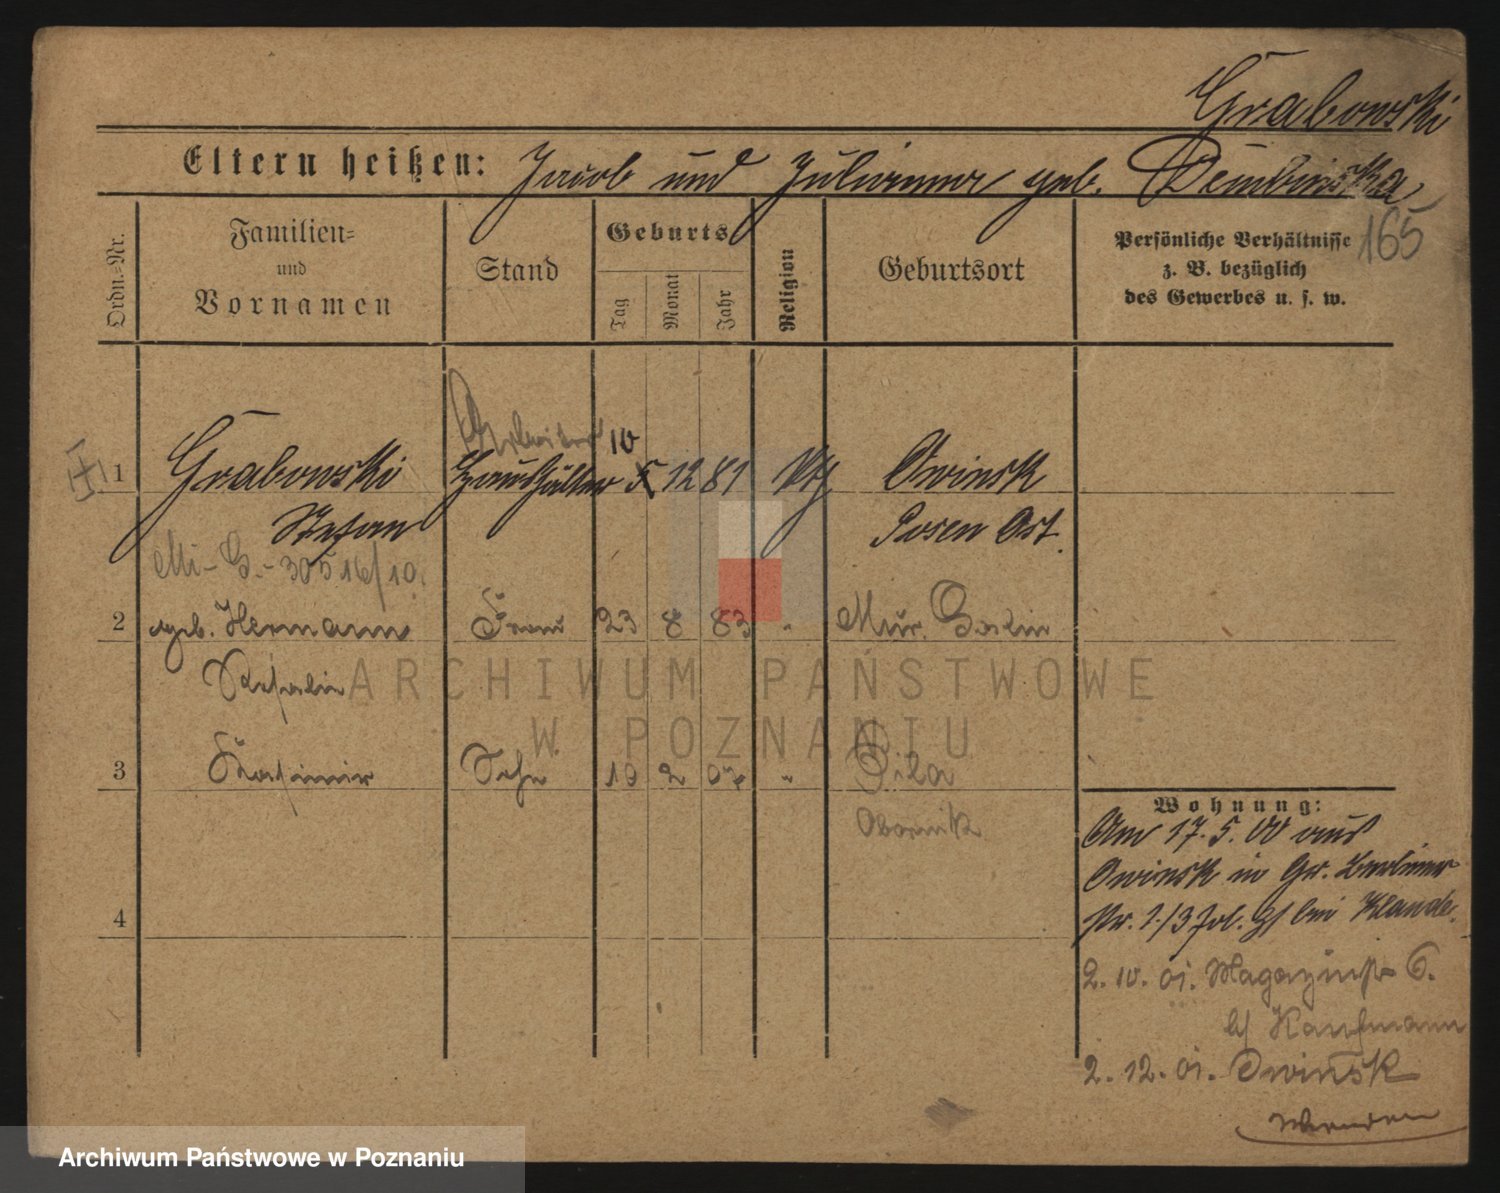 Grabowski
Eltern heißen: Jacob und Julianna geb. Dembinska
165
Ordn.-Nr.
Familien-
und
Vornamen
Stand
Geburts
Tag
Monat
Jahr
Religion
Geburtsort
Persönliche Verhältnisse
z. B. bezüglich
des Gewerbes u. s. w.
Arbeiter 10
1 Grabowski Haushälter 5 12 81 kth Owinsk
Stefan Posen Ost.
Mi-G.-30516/10.
2 geb. Hermann Frau 23 8 83 " Mur. Goslin
3 Kasimir Sohn 19 2 07 " Pila
Obornik
4
Wohnung:
Am 17.5.00 aus
Owinsk in Gr. Berliner
str. bei Klande.
2.10.01. Magazinstr 6.
b/ Kaufmann
2.12.01. Owinsk
Wenden
ARCHIWUM PAŃSTWOWE
W POZNANIU
Archiwum Państwowe w Poznaniu